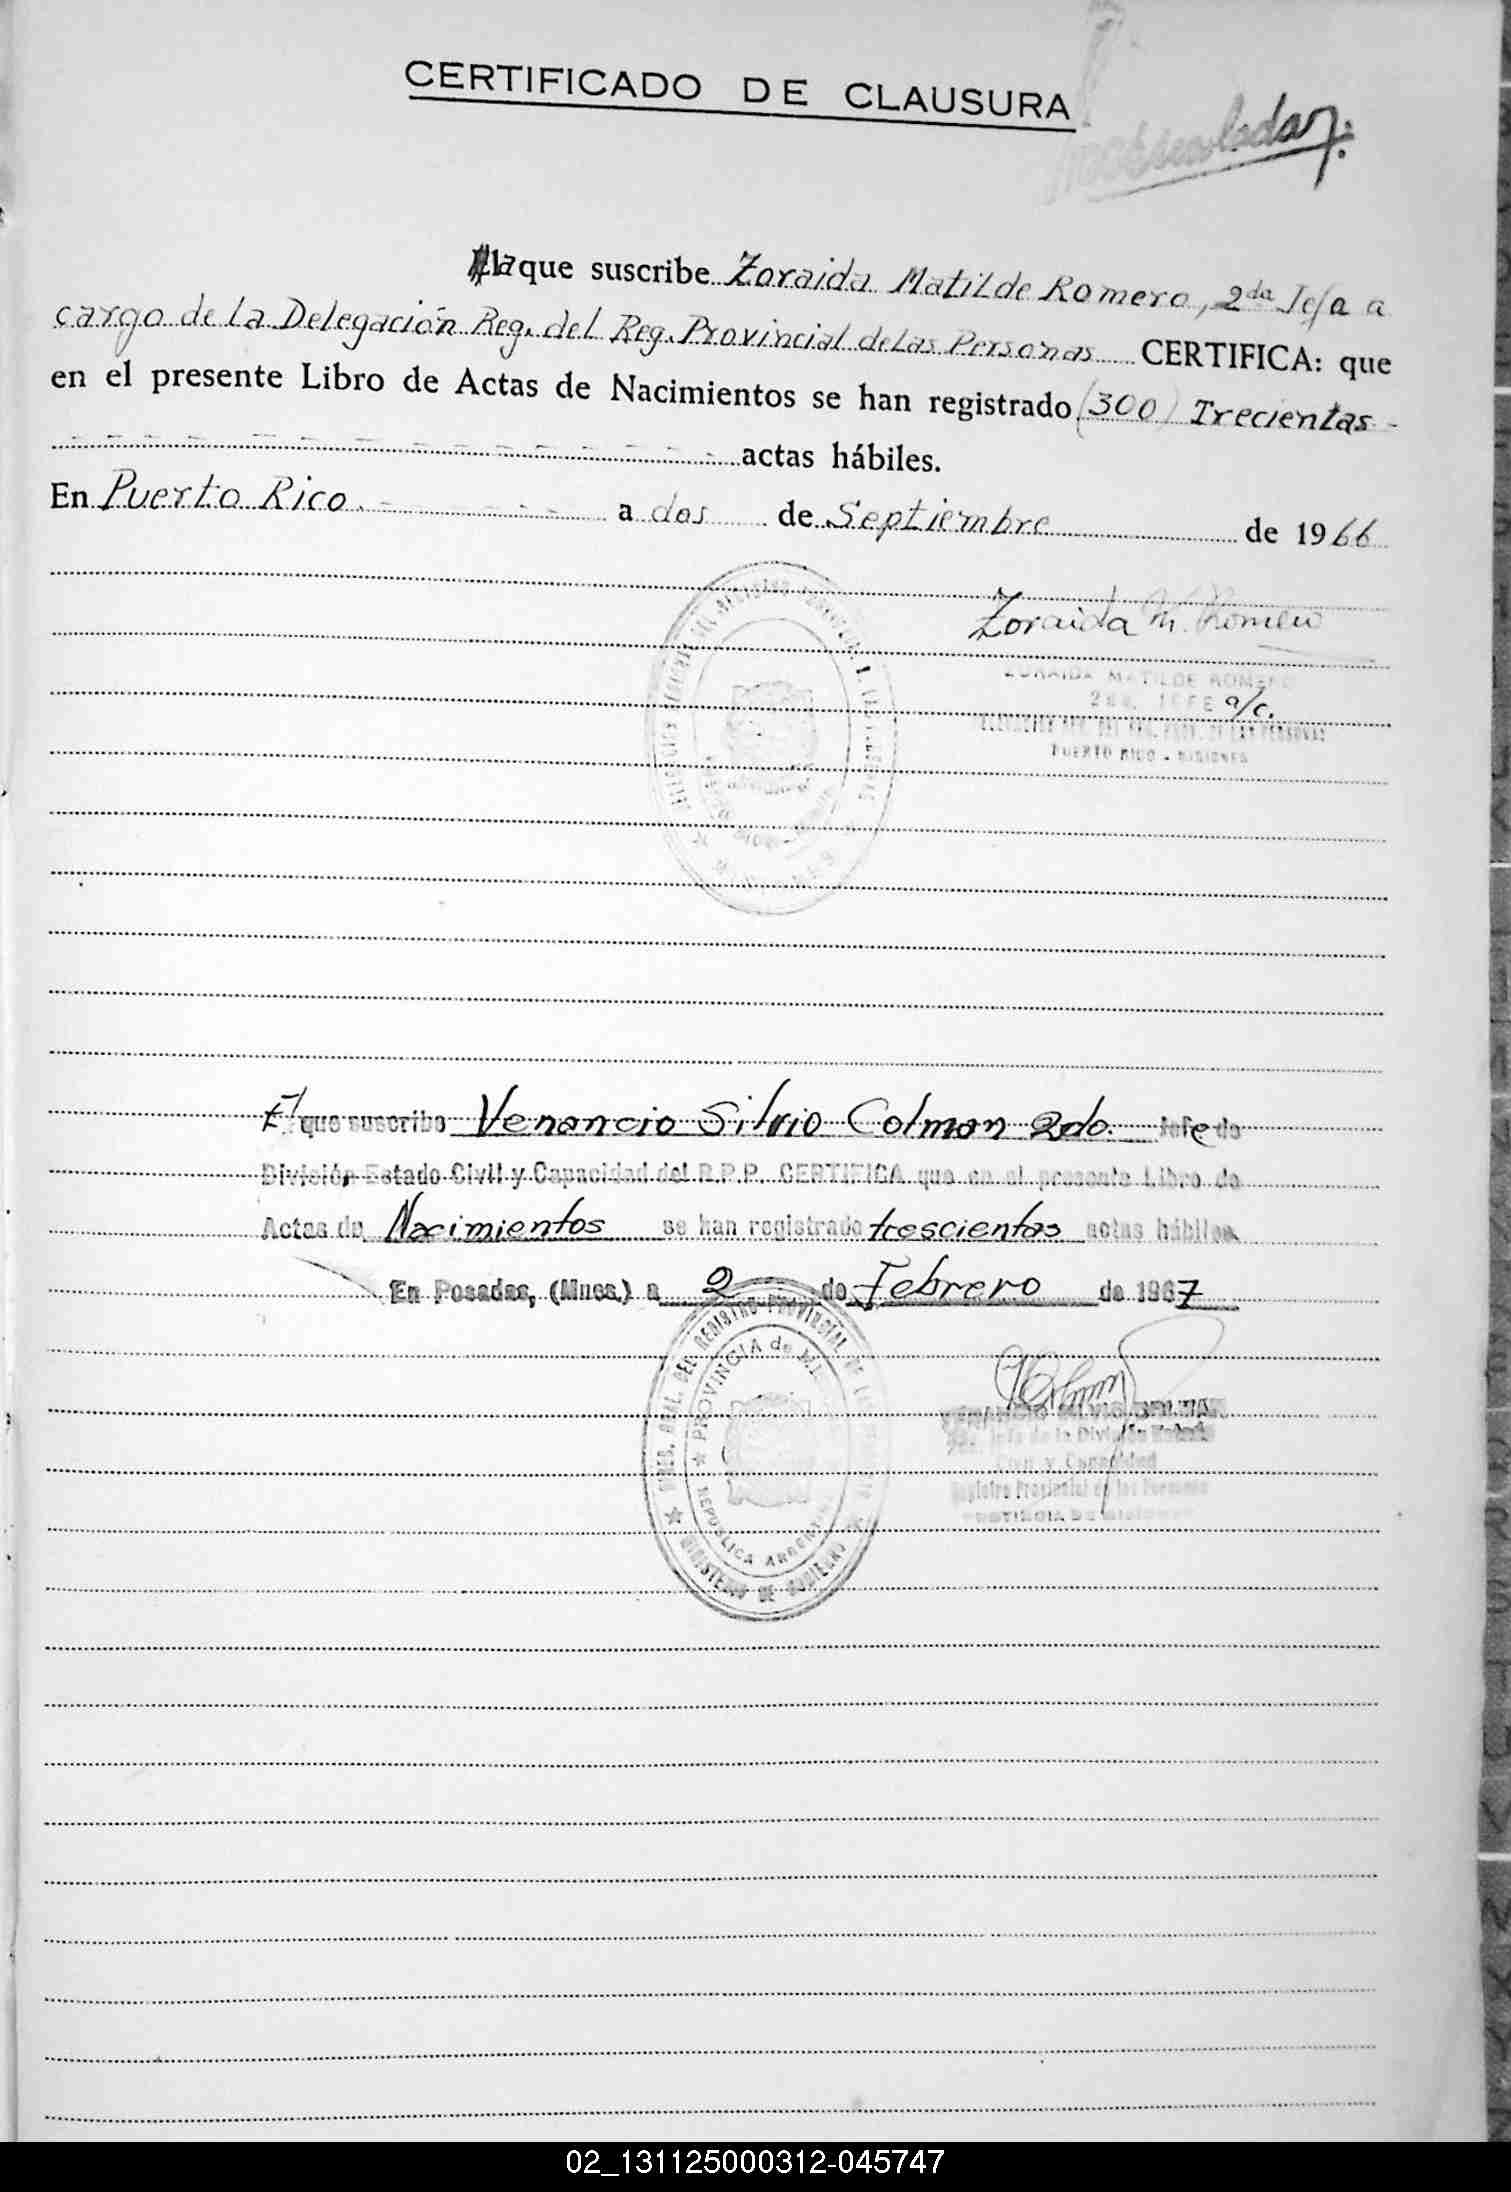 CERTIFICADO DE CLAUSURA
la que suscribe Zoraida Matilde Romero, 2da Jefa a
cargo de la Delegación Reg. del Reg. Provincial de las Personas CERTIFICA: que
en el presente Libro de Actas de Nacimientos se han registrado (300) Trecientas
actas hábiles.
En Puerto Rico a dos de Septiembre de 1966
Zoraida M. Romero
ZORAIDA MATILDE ROMERO
2da. JEFE a/c.
DELEGACION REG. DEL REG. PROV. DE LAS PERSONAS
PUERTO RICO - MISIONES
El que suscribe Venancio Silvio Colman 2do. Jefe de
División Estado Civil y Capacidad del R.P.P. CERTIFICA que en el presente Libro de
Actas de Nacimientos se han registrado trescientas actas hábiles
En Posadas, (Mnes.) a 2 de Febrero de 1967
DEL REGISTRO PROVINCIAL DE
PROVINCIA de
REPUBLICA ARGENTINA
MINISTERIO DE GOBIERNO
VENANCIO SILVIO COLMAN
2do. Jefe de la División Estado
Civil y Capacidad
Registro Provincial de las Personas
PROVINCIA DE MISIONES
02_131125000312-045747